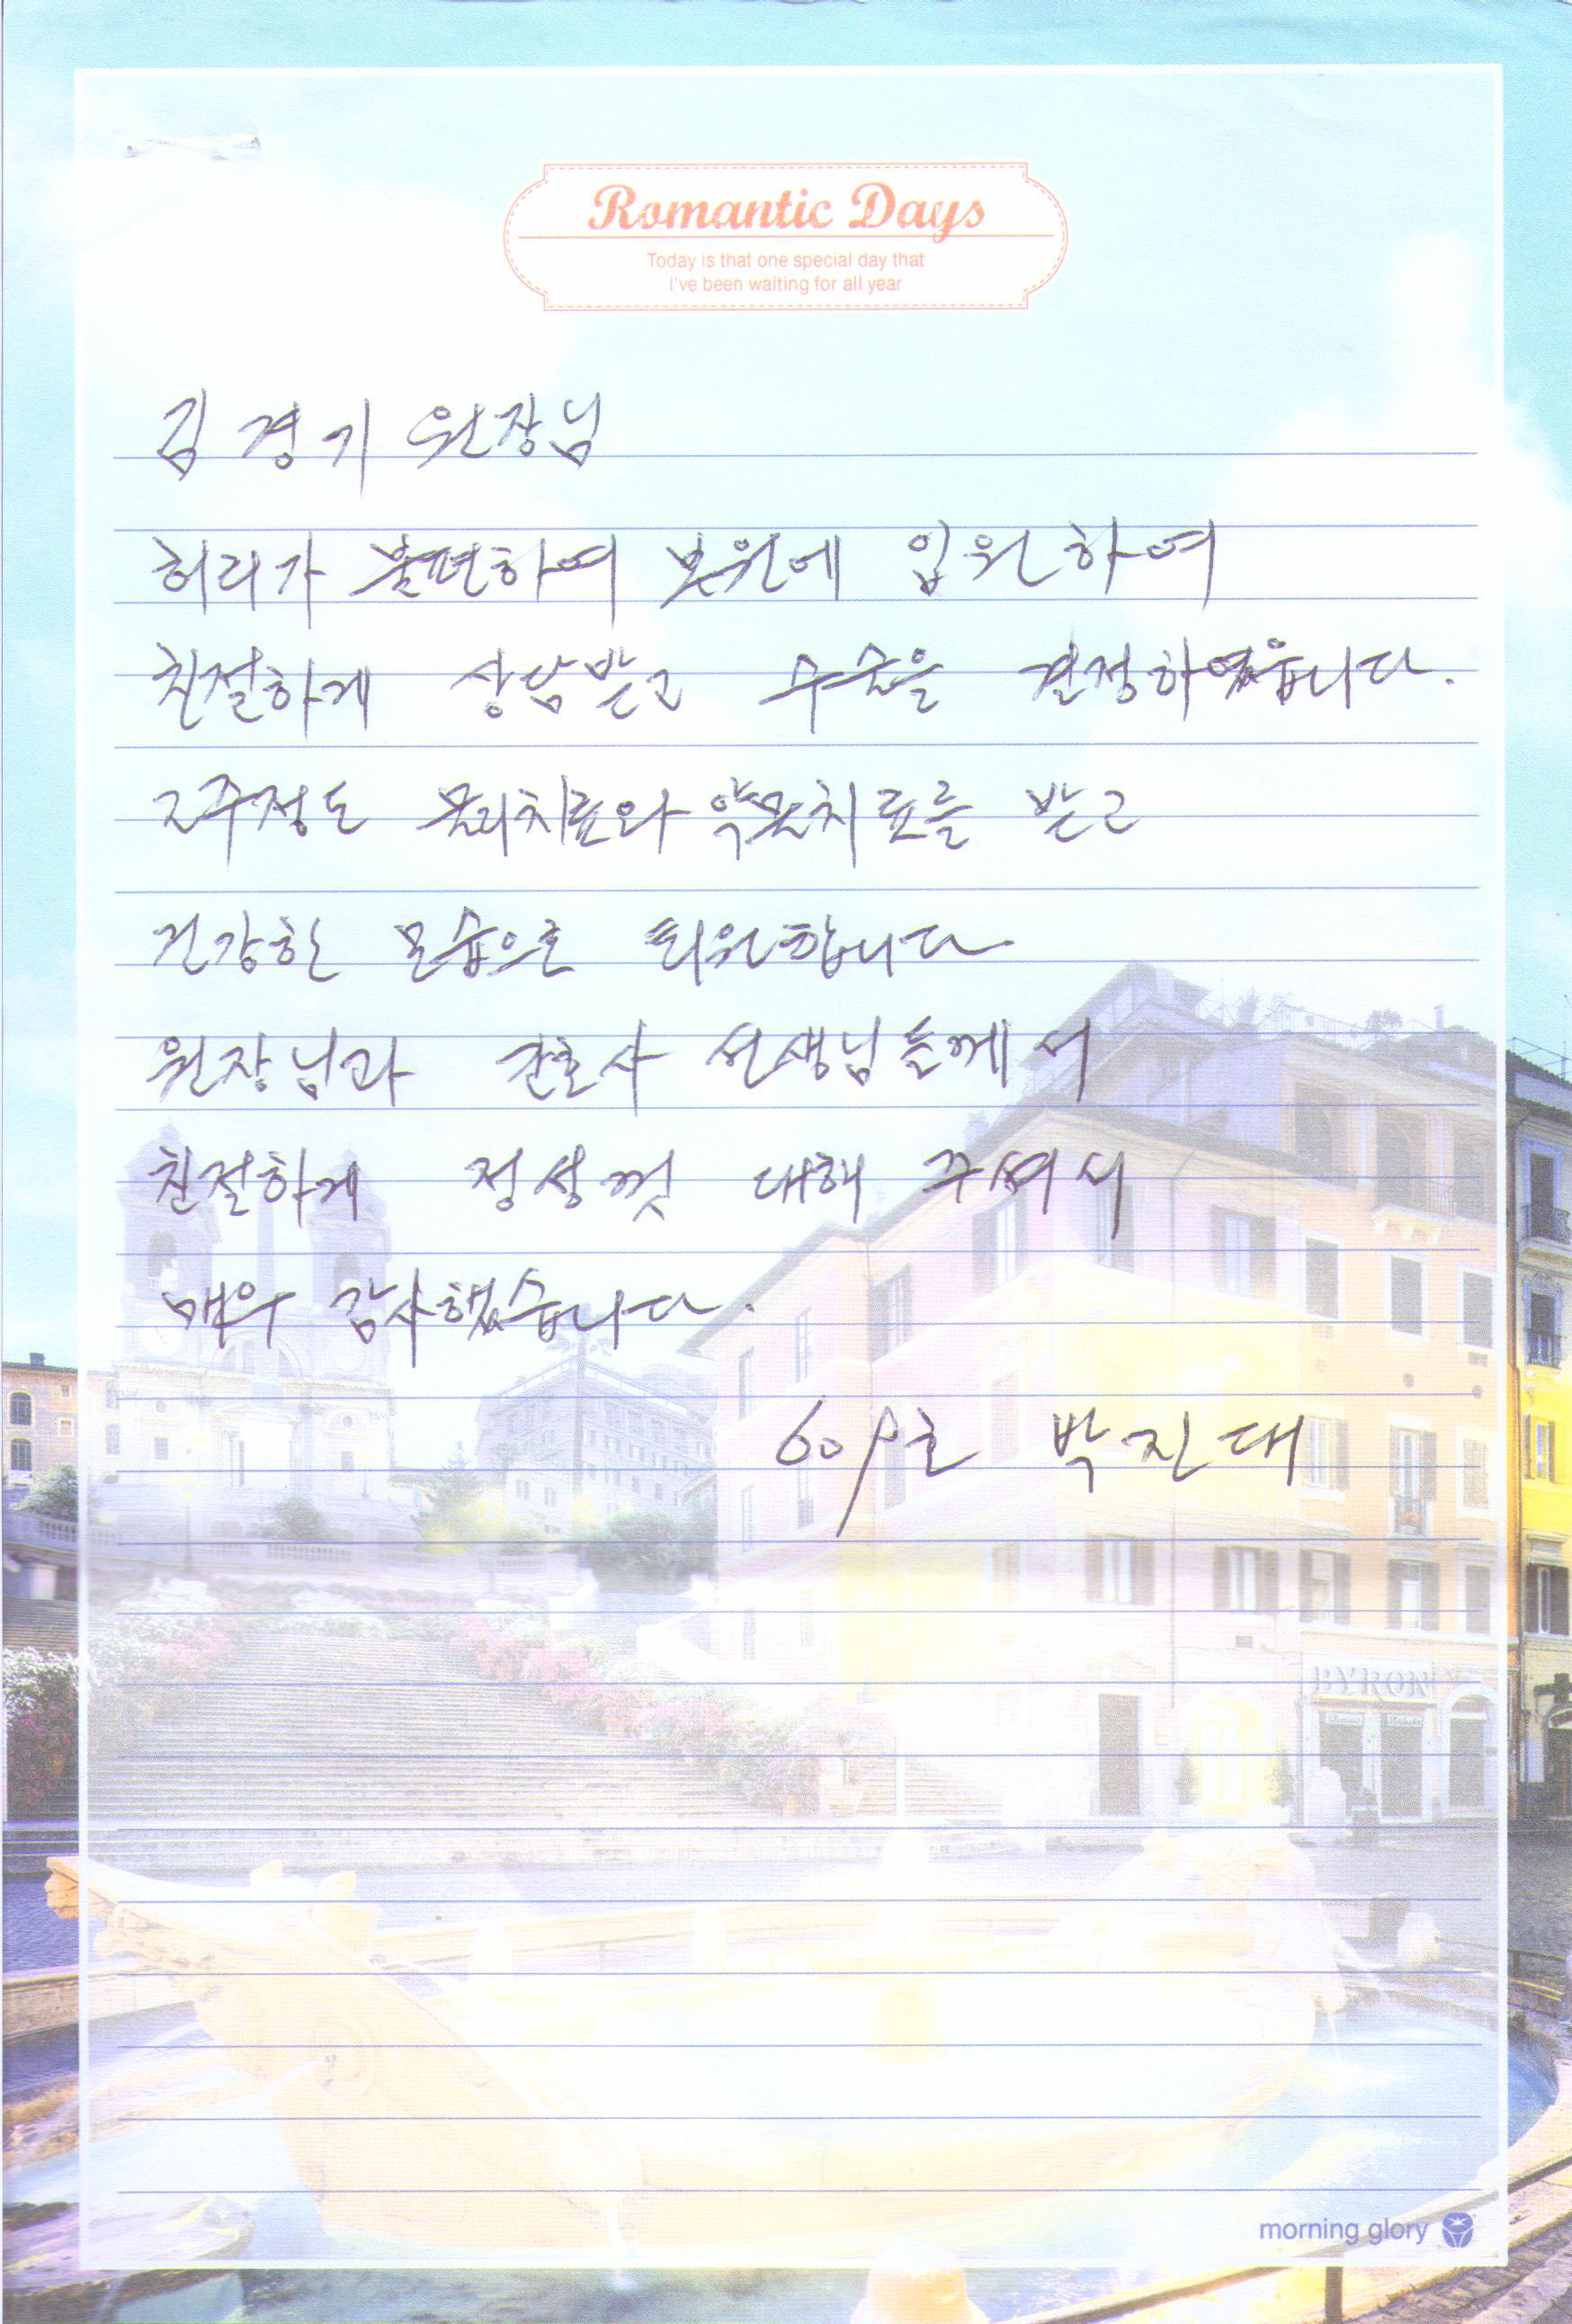 Romantic Days
Today is that one special day that
I've been waiting for all year
김경기 원장님
허리가 불편하여 본원에 입원하여
친절하게 상담받고 수술을 결정하였읍니다.
2주정도 물리치료와 약물치료를 받고
건강한 모습으로 퇴원합니다
원장님과 간호사 선생님들께서
친절하게 정성껏 대해 주셔서
매우 감사했습니다.
609호 박진대
BYRON
morning glory